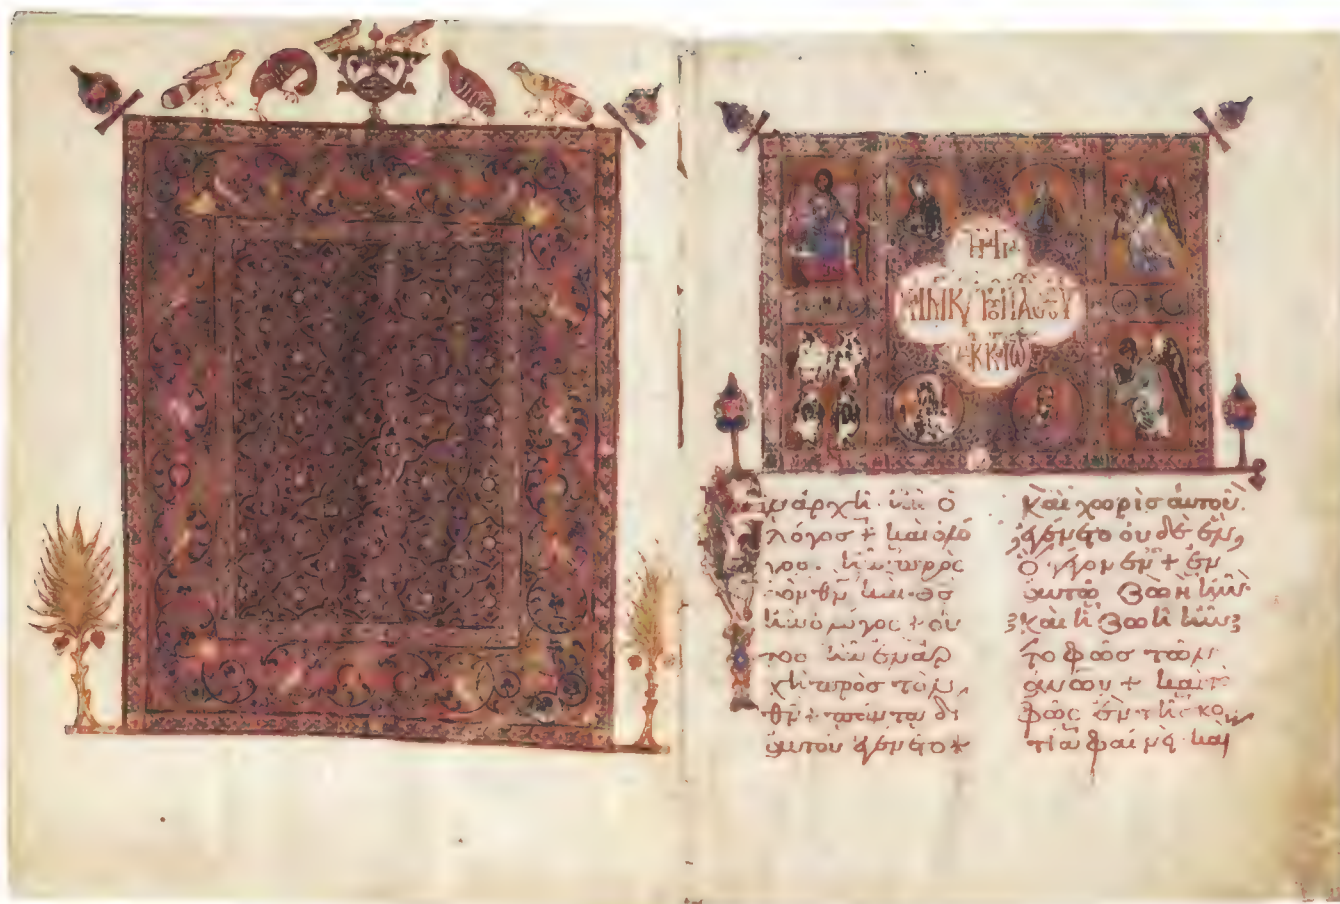 ἐν ἀρχῆ ἦν ὁ
λόγος + καὶ ὁ λό
γος ἦν πρὸς
τὸν θν καὶ θς
ἦν ὁ λόγος + οὗ
τος ἦν ἐν ἀρ
χῆ πρὸς τὸν
θν + πάντα δι
αυτοῦ ἐγένετο +
καὶ χωρὶς αυτοῦ
ἐγένετο οὐδὲ ἕν
ὃ γέγονεν + ἐν
αυτῶ ζωὴ ἦν
καὶ ἡ ζωὴ ἦν
τὸ φῶς τῶν
ἀνων + καὶ τὸ
φῶς ἐν τῆ σκο
τία φαίνει καὶ